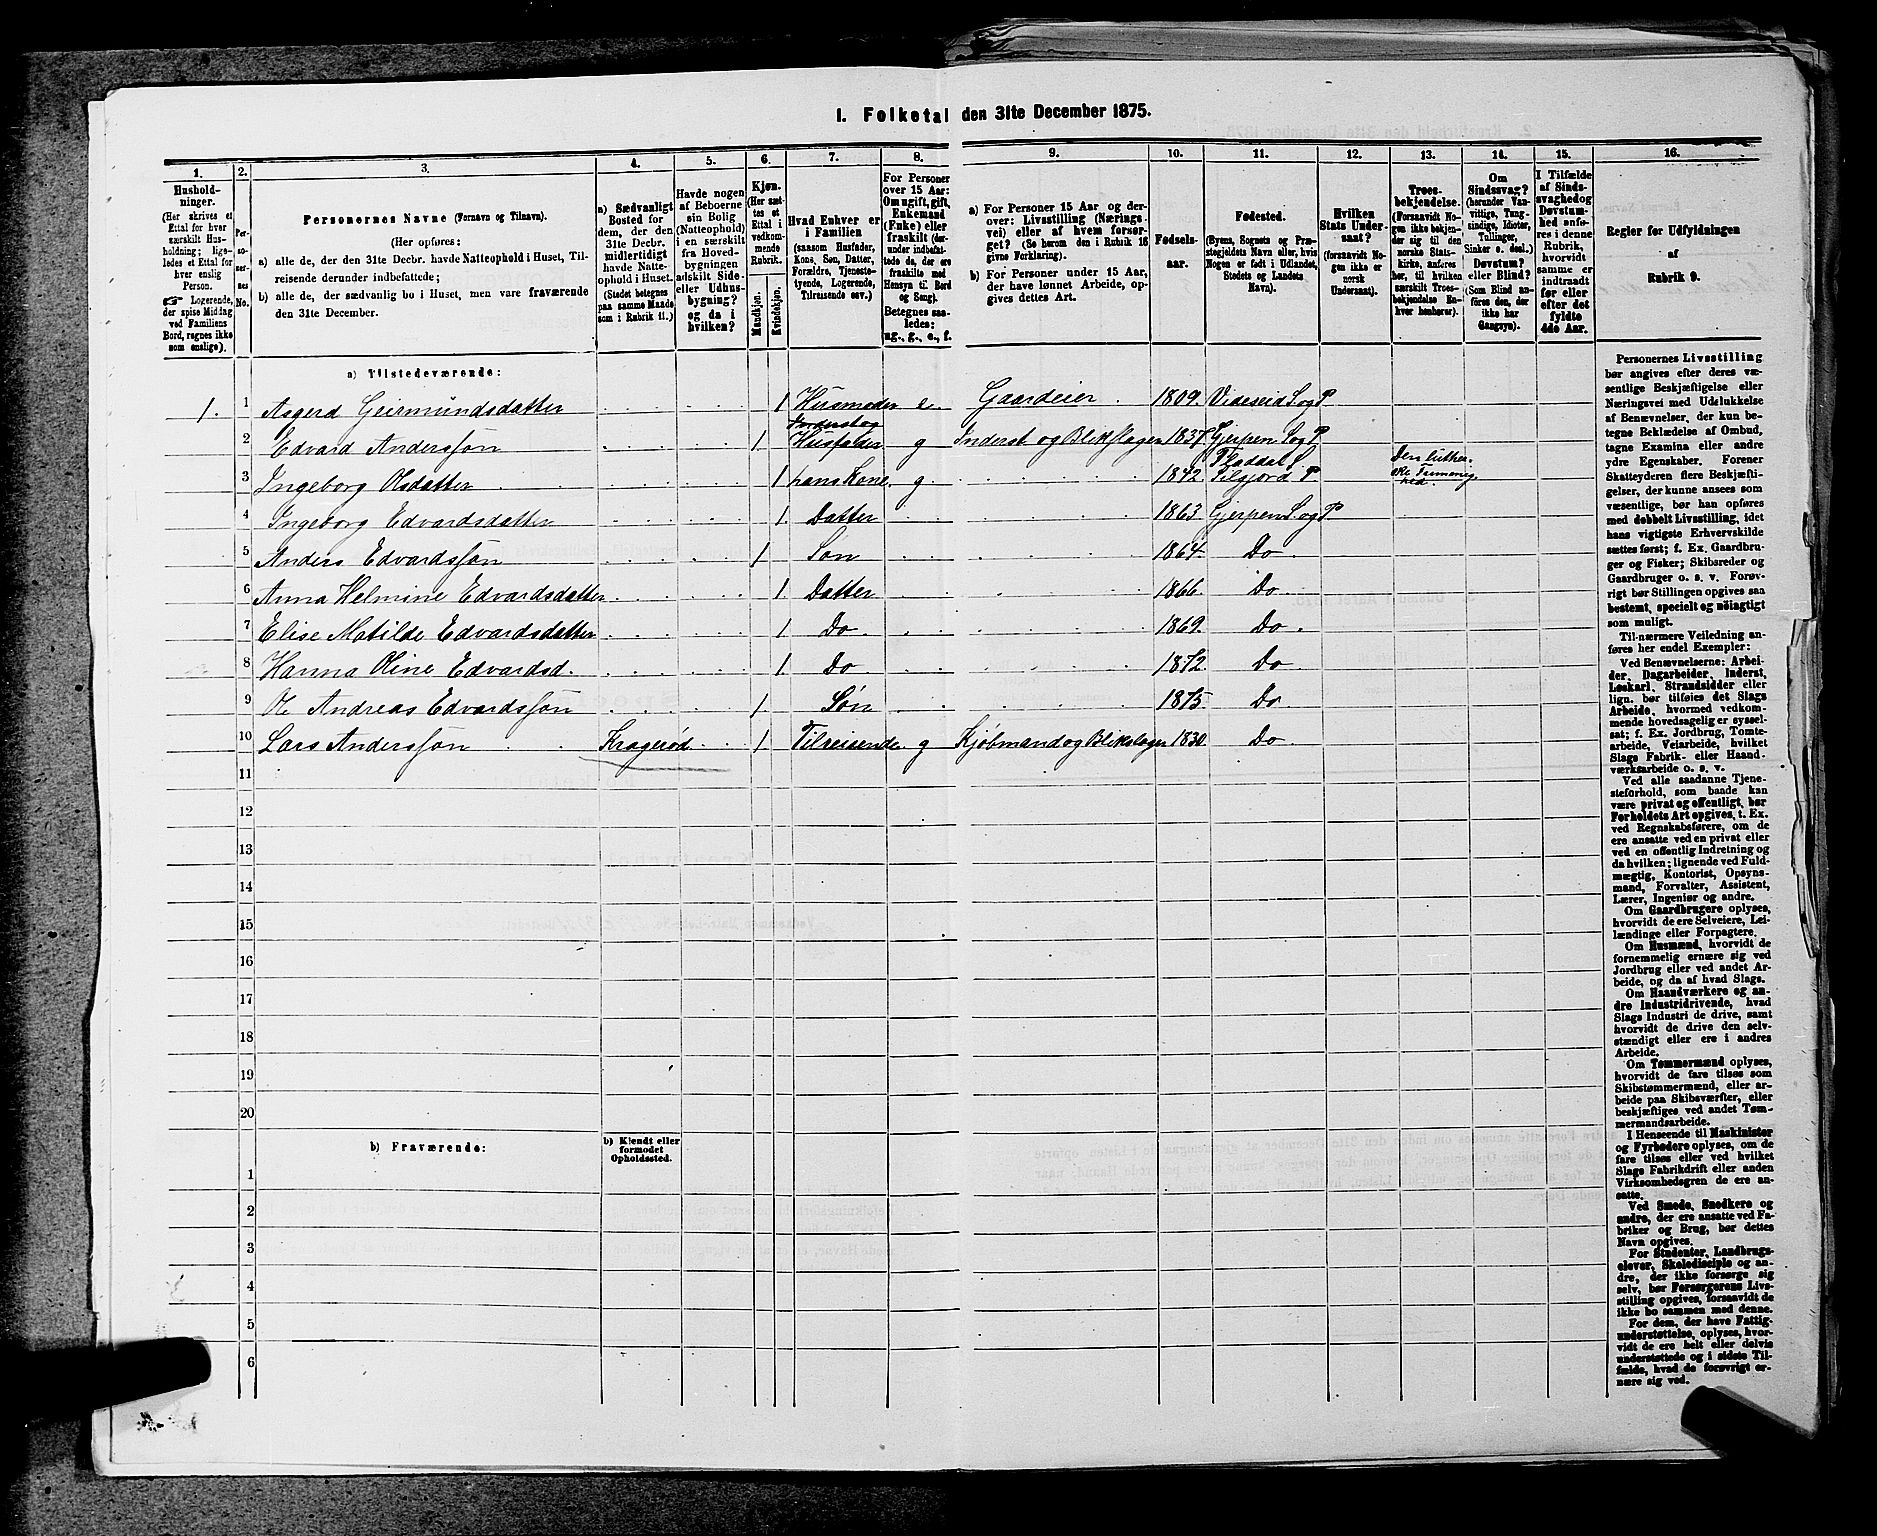 1. Folketal den 31te December 1875.
1.
2.
3.
4.
5.
6.
7.
8.
9.
10.
11.
12.
13.
14.
15.
16.
Hushold-
ninger.
(Her skrives et
Ettal for hver
særskilt Hus-
holdning; lige-
ledes et Ettal for
hver enslig
Person.
☞ Logerende,
der spise Middag
ved Familiens
Bord, regnes ikke
som enslige).
Per-
so-
ner-
nes
No.
Personernes Navne (Fornavn og Tilnavn).
(Her opføres:
a) alle de, der den 31te Decbr. havde Natteophold i Huset, Til-
reisende derunder indbefattede;
b) alle de, der sædvanlig bo i Huset, men vare fraværende
den 31te December.
a) Sædvanligt
Bosted for
dem, der den
31te Decbr.
midlertidigt
havde Natte-
ophold i Huset.
(Stedet betegnes
paa samme Maade
som i Rubrik 11.)
Havde nogen
af Beboerne
sin Bolig
(Natteophold)
i en særskilt
fra Hoved-
bygningen
adskilt Side-
eller Udhus-
bygning?
og da i
hvilken?
Kjøn.
(Her sæt-
tes et
Ettal i
vedkom-
mende
Rubrik.
Mandkjøn.
Kvindekjøn.
Hvad Enhver er
i Familien
(saasom Husfader,
Kone, Søn, Datter,
Forældre, Tjeneste-
tyende, Logerende,
Tilreisende osv.)
For Personer
over 15 Aar:
Om ugift, gift,
Enkemand
(Enke) eller
fraskilt (der-
under indbefat-
tede de, der ere
fraskilte med
Hensyn til Bord
og Seng).
Betegnes saa-
ledes:
ug., g., e., f.
a) For Personer 15 Aar og der-
over: Livsstilling (Nærings-
vei) eller af hvem forsør-
get? (Se herom den i Rubrik 16
givne Forklaring).
b) For Personer under 15 Aar,
der have lønnet Arbeide, op-
gives dettes Art.
Fødsels-
aar.
Fødested.
(Byens, Sognets og Præ-
stegjeldets Navn eller, hvis
Nogen er født i Udlandet,
Stedets og Landets
Navn).
Hvilken
Stats Under-
saat?
(forsaavidt No-
gen ikke er
norsk
Undersaat).
Troes-
bekjendelse.
(Forsaavidt No-
gen ikke bekjen-
der sig til den
norske Stats-
kirke, anføres
her, til hvilken
særskilt Troes-
bekjendelse En-
hver henhører).
Om
Sindssvag?
(herunder Van-
vittige, Tung-
sindige, Idioter,
Tullinger,
Sinker o. desl.).
Døvstum?
eller Blind?
(Som Blind an-
føres den, der
ikke har
Gangsyn).
I Tilfælde
af Sinds-
svaghed og
Døvstum-
hed anfø-
res i denne
Rubrik,
hvorvidt
samme er
indtraadt
før eller
efter det
fyldte
4de Aar.
Regler for Udfyldningen
af
Rubrik 9.
a) Tilstedeværende:
1. 1 Aagerd Geirmundsdatter 1 Husmoder e. Gaardeier. 1809. Videseid S og P
Inderst og
2 Edvard Anderssøn 1 Husfader g Inderst og Blikslager 1837. Gjerpen S og P.
3 Ingeborg Olsdatter 1 hans Kone g 1842. Fladdal S. Silgjord P. Den luther.
4 Ingeborg Edvardsdatter 1 Datter 1863. Gjerpen S og P
5 Anders Edvardssøn 1 Søn 1864. Do
6 Anna Helmine Edvardsdatter 1 Datter 1866. Do
7 Elise Matilde Edvardsdatter 1 Do 1869. Do
8 Hanna Oline Edvardsd. 1 Do 1872. Do
9 Ole Andreas Edvardssøn 1 Søn 1875. Do
10 Lars Anderssøn Kragerød 1 Tilreisende g Kjøbmand og Blikslager 1830. Do
11
12
13
14
15
16
17
18
19
20
b) Fraværende:
b) Kjendt eller
formodet
Opholdssted.
1
2
3
4
5
6
Personernes Livsstilling
bør angives efter deres væ-
sentlige Beskjæftigelse eller
Næringsvei med Udelukkelse
af Benævnelser, der kun be-
tegne Beklædelse af Ombud,
tagne Examina eller andre
ydre Egenskaber. Forener
Skatteyderen flere Beskjæfti-
gelser, der kunne ansees som
væsentlige, bør han opføres
med dobbelt Livsstilling, idet
hans vigtigste Erhvervskilde
sættes først; f. Ex. Gaardbru-
ger og Fisker; Skibsreder og
Gaardbruger o. s. v. Forøv-
rigt bør Stillingen opgives saa
bestemt, specielt og nøiagtigt
som muligt.
Til nærmere Veiledning an-
føres her endel Exempler:
Ved Benævnelserne: Arbei-
der, Dagarbeider, Inderst,
Løskarl, Strandsidder eller
lign. bør tilføies det Slags
Arbeide, hvormed vedkom-
mende hovedsagelig er syssel-
sat; f. Ex. Jordbrug, Tomte-
arbeide, Veiarbeide, hvilket
Slags Fabrik- eller Haand-
værksarbeide o. s. v.
Ved alle saadanne Tjene-
steforhold, som baade kan
være privat og offentligt, bør
Forholdets Art opgives, t. Ex.
ved Regnskabsførere, om de
ere ansatte ved en privat eller
ved en offentlig Indretning og
da hvilken; lignende ved Fuld-
mægtig, Kontorist, Opsyns-
mand, Forvalter, Assistent,
Lærer, Ingeniør og andre.
Om Gaardbrugere oplyses,
hvorvidt de ere Selveiere, Lei-
lændinge eller Forpagtere.
Om Husmænd, hvorvidt de
fornemmelig ernære sig ved
Jordbrug eller ved andet Ar-
beide, og da af hvad Slags.
Om Haandværkere og an-
dre Industridrivende, hvad
Slags Industri de drive, samt
hvorvidt de drive den selv-
stændigt eller ere i andres
Arbeide.
Om Tømmermænd oplyses,
hvorvidt de fare tilsøs som
Skibstømmermænd, eller ar-
beide paa Skibsværfter, eller
beskjæftiges ved andet Tøm-
mermandsarbeide.
I Henseende til Maskinister
og Fyrbødere oplyses, om de
fare tilsøs eller ved hvilket
Slags Fabrikdrift eller anden
Virksomhedsgren de ere an-
satte.
Ved Smede, Snedkere og
andre, der ere ansatte ved Fa-
briker og Brug, bør dettes
Navn opgives.
For Studenter, Landbrugs-
elever, Skoledisciple og an-
dre, der ikke forsørge sig
selv, bør Forsørgerens Livs-
stilling opgives, forsaavidt de
ikke bo sammen med denne.
For dem, der have Fattig-
understøttelse, oplyses, hvor-
vidt de ere helt eller delvis
understøttede og i sidste Til-
fælde, hvad de forøvrigt er-
nære sig ved.